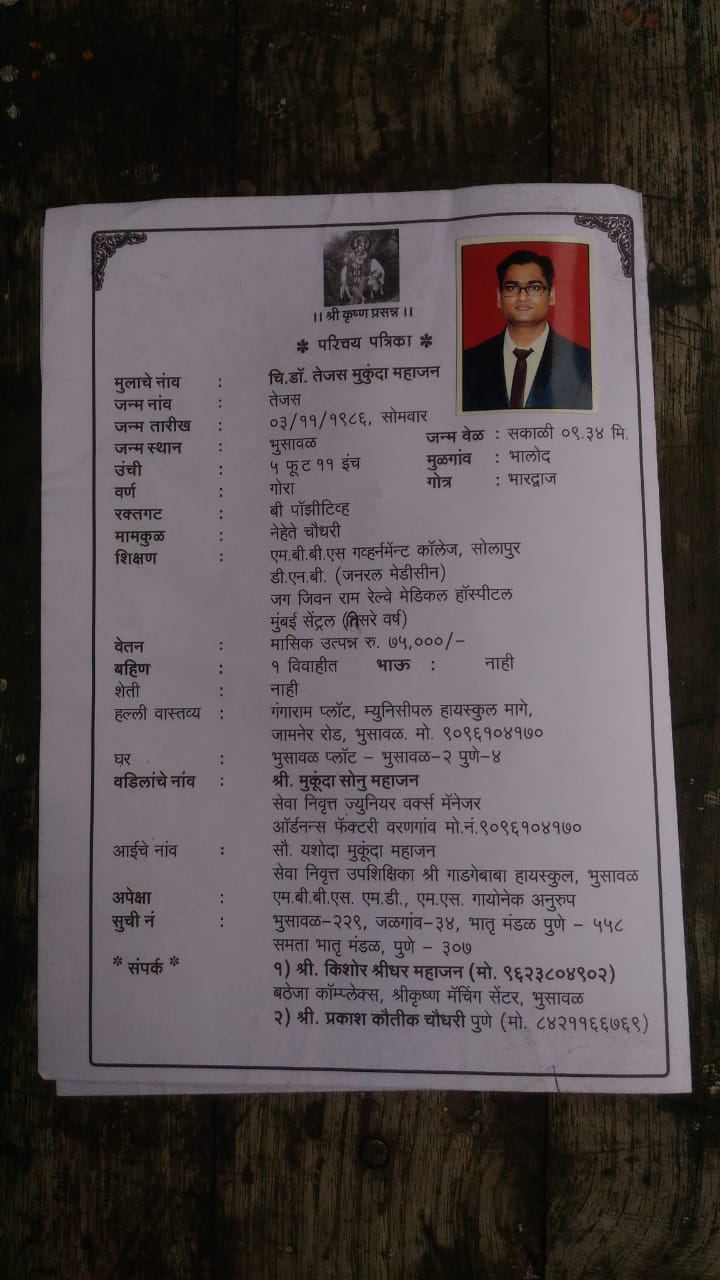 ।। श्री कृष्ण प्रसन्न ।।
* परिचय पत्रिका *
मुलाचे नांव : चि.डॉ. तेजस मुकुंदा महाजन
जन्म नांव : तेजस
जन्म तारीख : ०३/११/१९८६, सोमवार
जन्म वेळ : सकाळी ०९.३४ मि.
जन्म स्थान : भुसावळ
मुळगांव : भालोद
उंची : ५ फूट ११ इंच
गोत्र : भारद्वाज
वर्ण : गोरा
रक्तगट : बी पॉझीटिव्ह
मामकुळ : नेहेते चौधरी
शिक्षण : एम.बी.बी.एस गव्हर्नमेंन्ट कॉलेज, सोलापुर
डी.एन.बी. (जनरल मेडीसीन)
जग जिवन राम रेल्वे मेडिकल हॉस्पीटल
मुंबई सेंट्रल (तिसरे वर्ष)
वेतन : मासिक उत्पन्न रु. ७५,०००/-
बहिण : १ विवाहीत भाऊ : नाही
शेती : नाही
हल्ली वास्तव्य : गंगाराम प्लॉट, म्युनिसीपल हायस्कुल मागे,
जामनेर रोड, भुसावळ. मो. ९०९६१०४१७०
घर : भुसावळ प्लॉट - भुसावळ-२ पुणे-४
वडिलांचे नांव : श्री. मुकूंदा सोनु महाजन
सेवा निवृत्त ज्युनियर वर्क्स मॅनेजर
ऑर्डनन्स फॅक्टरी वरणगांव मो.नं.९०९६१०४१७०
आईचे नांव : सौ. यशोदा मुकूंदा महाजन
सेवा निवृत्त उपशिक्षिका श्री गाडगेबाबा हायस्कुल, भुसावळ
अपेक्षा : एम.बी.बी.एस. एम.डी., एम.एस. गायोनेक अनुरुप
सुची नं : भुसावळ-२२९, जळगांव-३४, भातृ मंडळ पुणे - ५५८
समता भातृ मंडळ, पुणे - ३०७
* संपर्क * १) श्री. किशोर श्रीधर महाजन (मो. ९६२३८०४९०२)
बठेजा कॉम्प्लेक्स, श्रीकृष्ण मॅचिंग सेंटर, भुसावळ
२) श्री. प्रकाश कौतीक चौधरी पुणे (मो. ८४२११६६७६९)